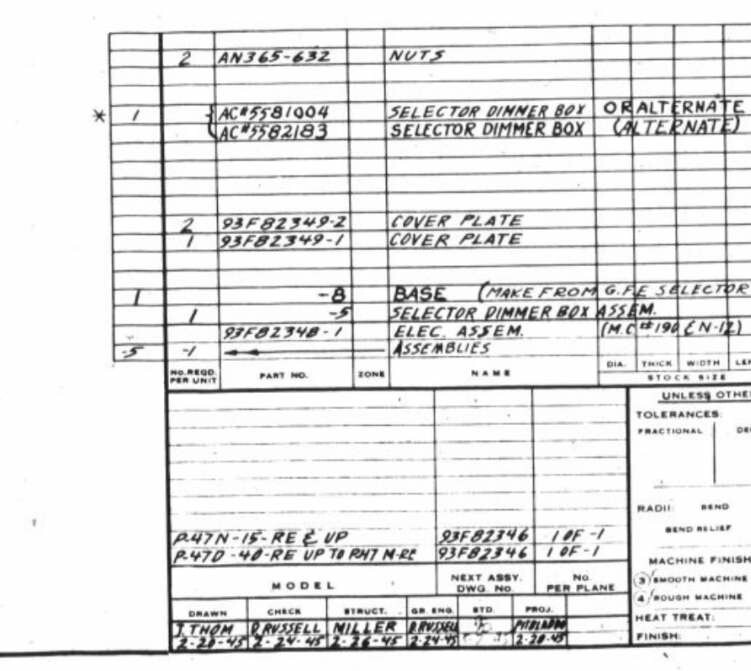 2 AN365-632 NUTS
* 1 AC#5581004 SELECTOR DIMMER BOX OR ALTERNATE
AC#5582183 SELECTOR DIMMER BOX (ALTERNATE)
2 93F82349-2 COVER PLATE
1 93F82349-1 COVER PLATE
1 -8 BASE (MAKE FROM G.F.E SELECTOR
1 -5 SELECTOR DIMMER BOX ASSEM.
93F82348-1 ELEC. ASSEM. (M.C #190 & N-12)
-5 -1 ASSEMBLIES
NO. REQD. PER UNIT PART NO. ZONE NAME DIA. THICK WIDTH LEN
STOCK SIZE
UNLESS OTHE
TOLERANCES:
FRACTIONAL DE
RADII: BEND
BEND RELIEF
P-47N-15-RE & UP 93F82346 1 OF -1
P-47D-40-RE UP TO P47M-RE 93F82346 1 OF -1
MACHINE FINISH
MODEL NEXT ASSY. DWG. No. No. PER PLANE
3 SMOOTH MACHINE
4 ROUGH MACHINE
DRAWN CHECK STRUCT. GR. ENG. STD. PROJ.
J. THOM D. RUSSELL MILLER D. RUSSELL
2-20-45 2-24-45 2-26-45 2-24-45 2-28-45
HEAT TREAT:
FINISH: